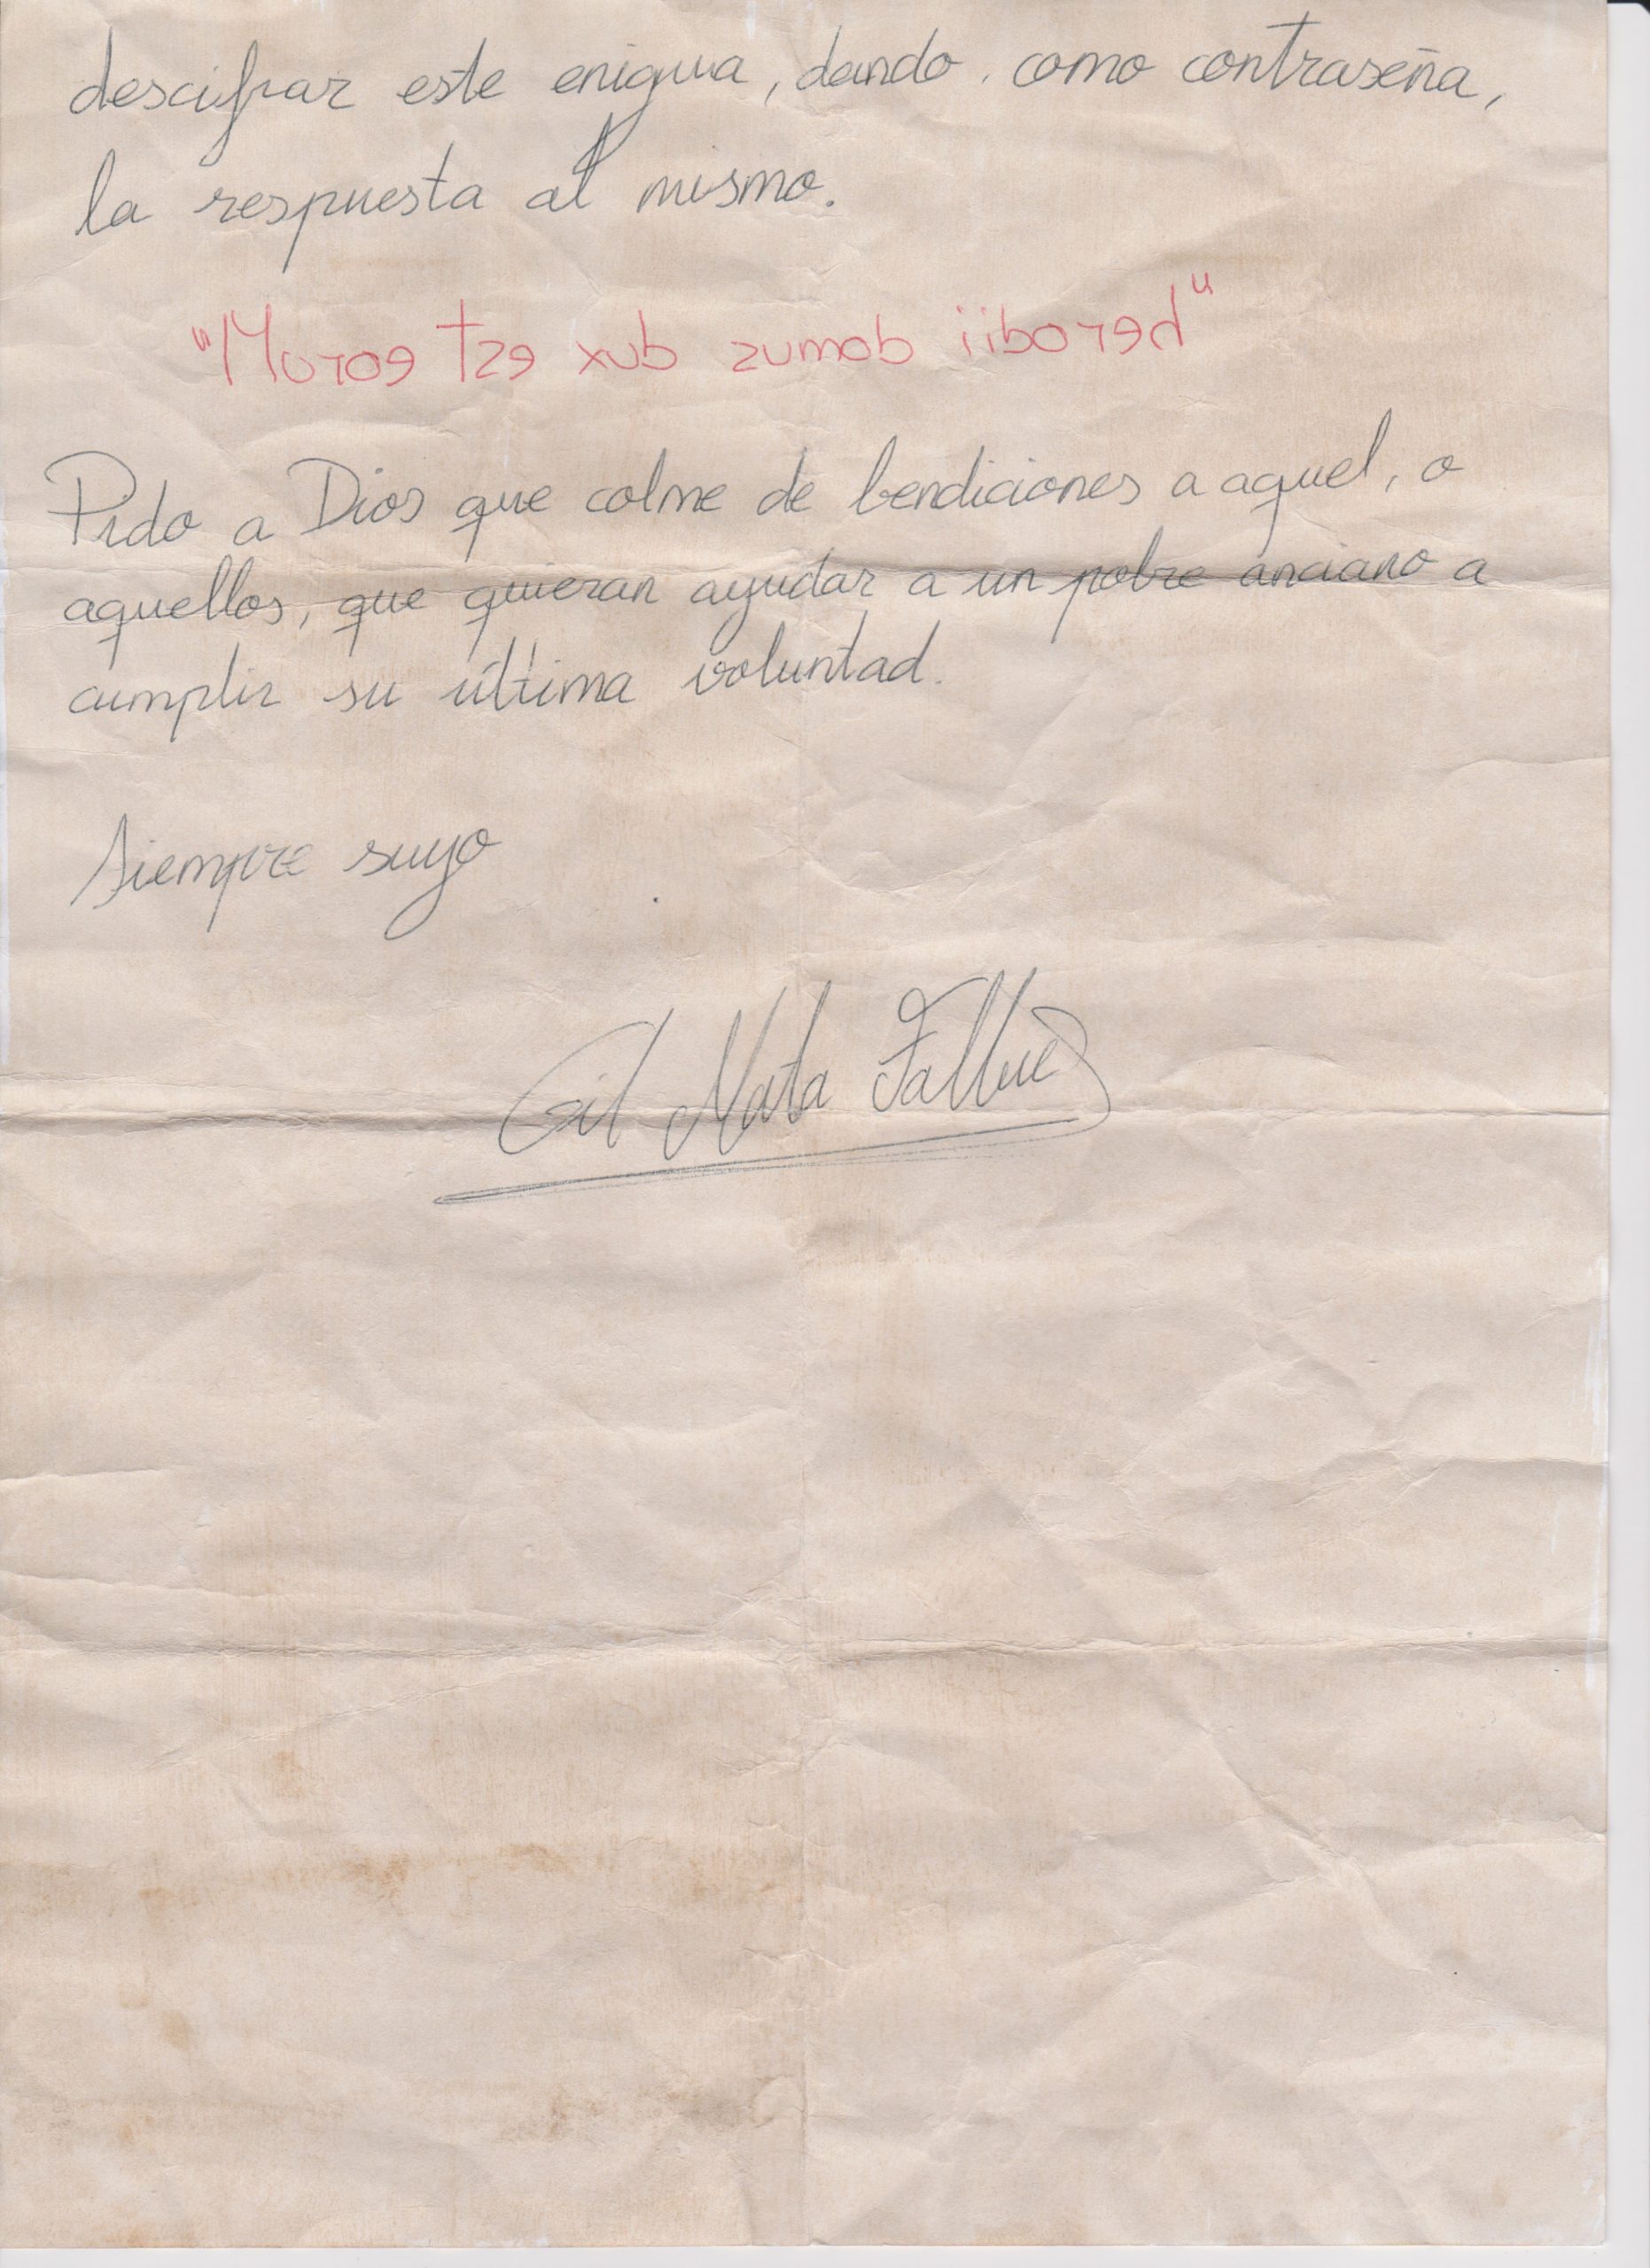 descifrar este enigma, dando como contraseña,
la respuesta al mismo.
"herodii domus dux esT eoruM"
Pido a Dios que colme de bendiciones a aquel, o
aquellos, que quieran ayudar a un pobre anciano a
cumplir su última voluntad.
Siempre suyo
Gil Mata Fallué